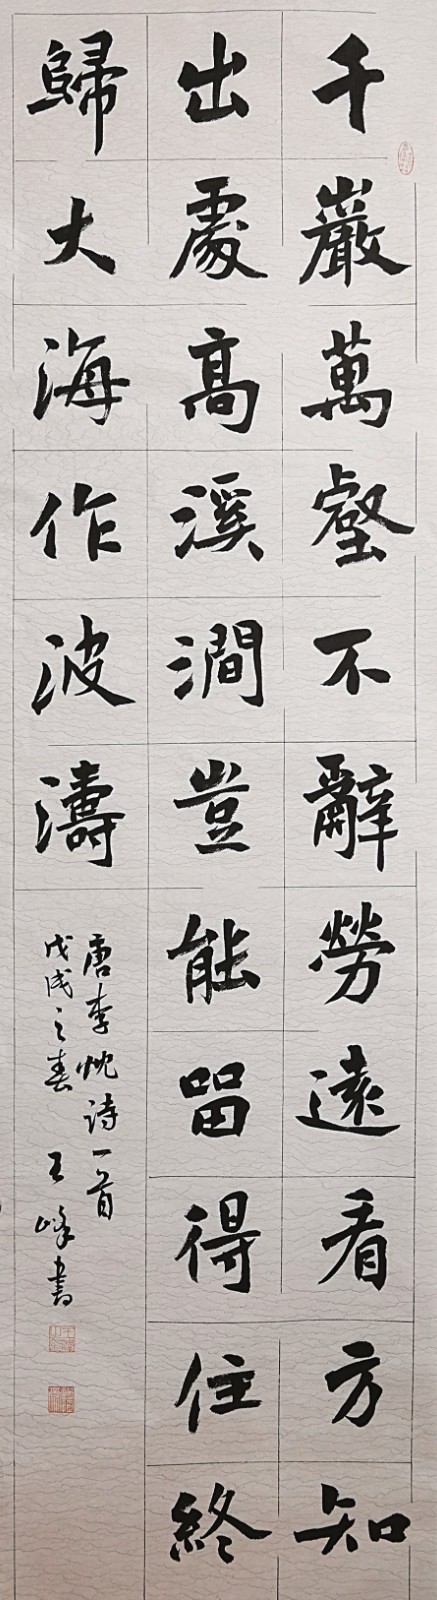 千巖萬壑不辭勞遠看方知
出處高溪澗豈能留得住終
歸大海作波濤
唐李忱诗一首
戊戌之春 王峰書